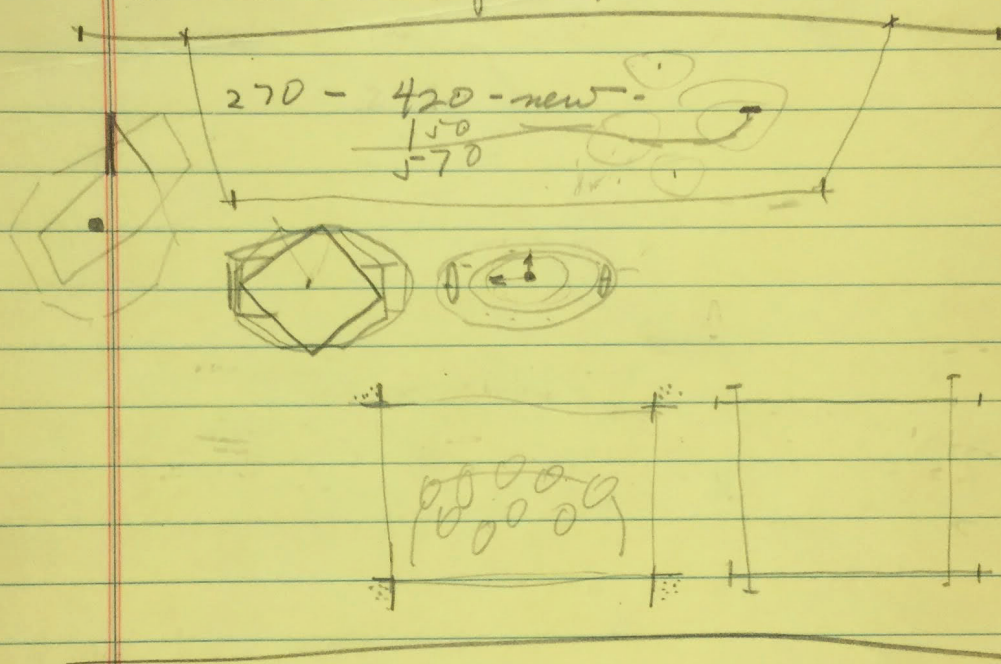 270 - 420 - new -
150
570